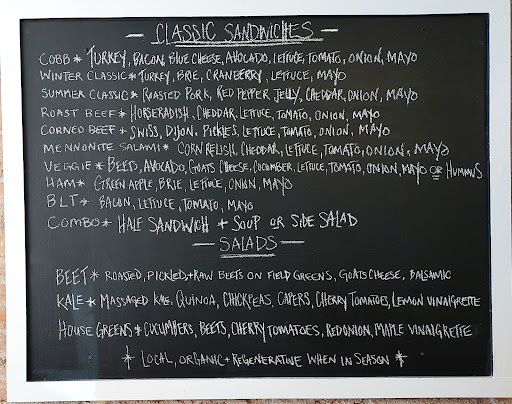 - CLASSIC SANDWICHES -
COBB * TURKEY, BACON, BLUE CHEESE, AVOCADO, LETTUCE, TOMATO, ONION, MAYO
WINTER CLASSIC * TURKEY, BRIE, CRANBERRY, LETTUCE, MAYO
SUMMER CLASSIC * ROASTED PORK, RED PEPPER JELLY, CHEDDAR, ONION, MAYO
ROAST BEEF * HORSERADISH, CHEDDAR, LETTUCE, TOMATO, ONION, MAYO
CORNED BEEF * SWISS, DIJON, PICKLES, LETTUCE, TOMATO, ONION, MAYO
MENNONITE SALAMI * CORN RELISH, CHEDDAR, LETTUCE, TOMATO, ONION, MAYO
VEGGIE * BEETS, AVOCADO, GOATS CHEESE, CUCUMBER, LETTUCE, TOMATO, ONION, MAYO OR HUMMUS
HAM * GREEN APPLE, BRIE, LETTUCE, ONION, MAYO
BLT * BACON, LETTUCE, TOMATO, MAYO
COMBO * HALF SANDWICH + SOUP OR SIDE SALAD
- SALADS -
BEET * ROASTED, PICKLED + RAW BEETS ON FIELD GREENS, GOATS CHEESE, BALSAMIC
KALE * MASSAGED KALE, QUINOA, CHICKPEAS, CAPERS, CHERRY TOMATOES, LEMON VINAIGRETTE
HOUSE GREENS * CUCUMBERS, BEETS, CHERRY TOMATOES, RED ONION, MAPLE VINAIGRETTE
* LOCAL, ORGANIC + REGENERATIVE WHEN IN SEASON *